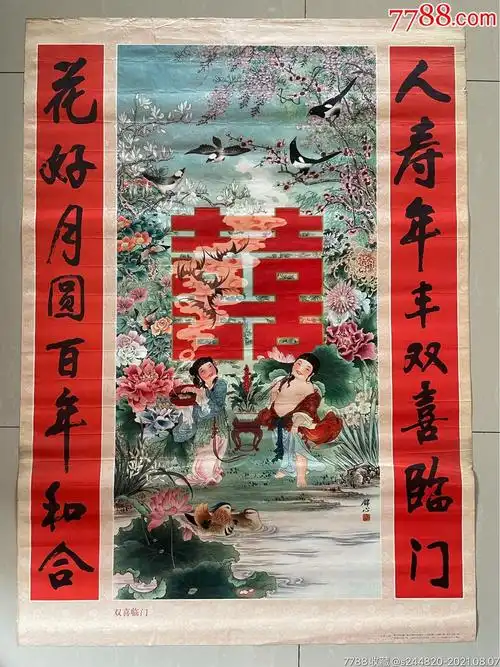 7788.com
人寿年丰双喜临门
花好月圆百年和合
囍
双喜临门
7788收藏@s244820-2021.08.07